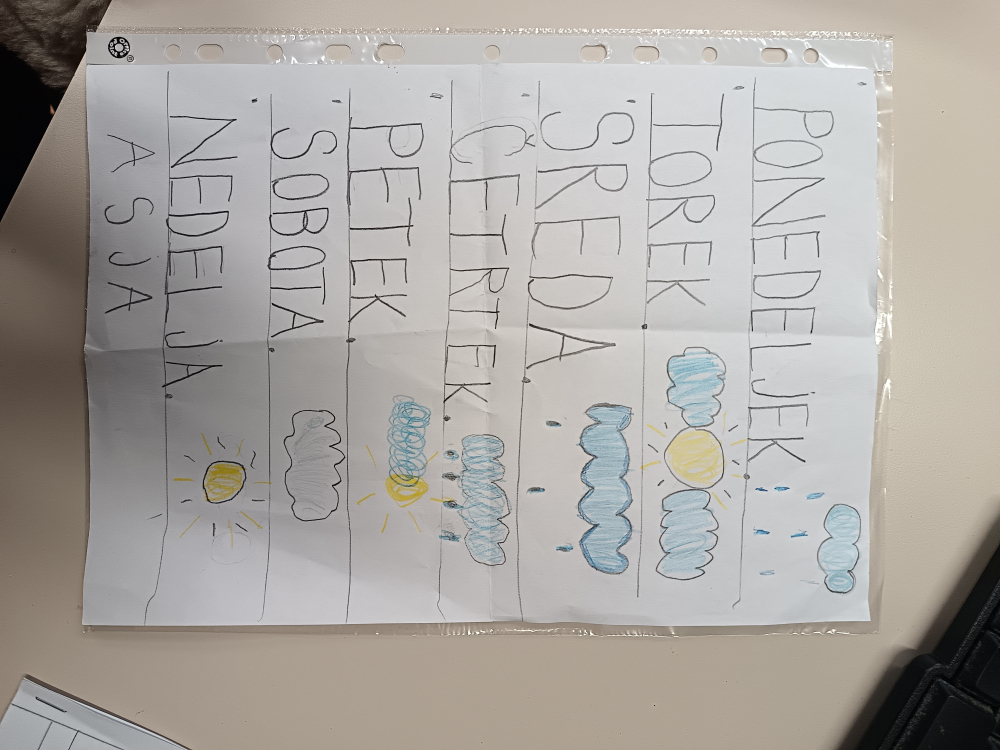 PONEDELJEK
TOREK
SREDA
ČETRTEK
PETEK
SOBOTA
NEDELJA
ASJA